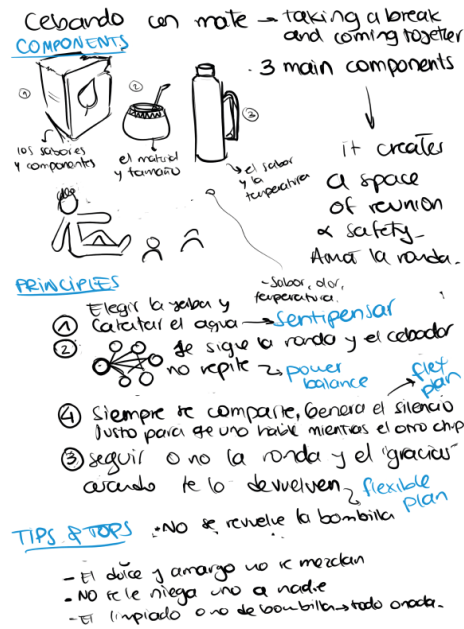 Cebando con mate → taking a break
and coming together
COMPONENTS
· 3 main components
①
②
③
los sabores
y componentes
el material
y tamaño
el sabor
y la
temperatura
it creates
a space
of reunion
& safety.
Amar la ronda.
- Sabor, olor,
temperatura.
PRINCIPLES
① Elegir la yerba y
Calentar el agua → sentipensar
② Se sigue la ronda y el cebador
no repite → power
balance
flex
plan
④ Siempre se comparte, Genera el silencio
Justo para que uno hable mientras el otro
③ seguir o no la ronda y el "gracias"
cuando te lo devuelven → flexible
plan
TIPS & TOPS
· NO se revuelve la bombilla
- El dulce y amargo no se mezclan
- NO se le niega uno a nadie
- El limpiado o no de bombilla → todo